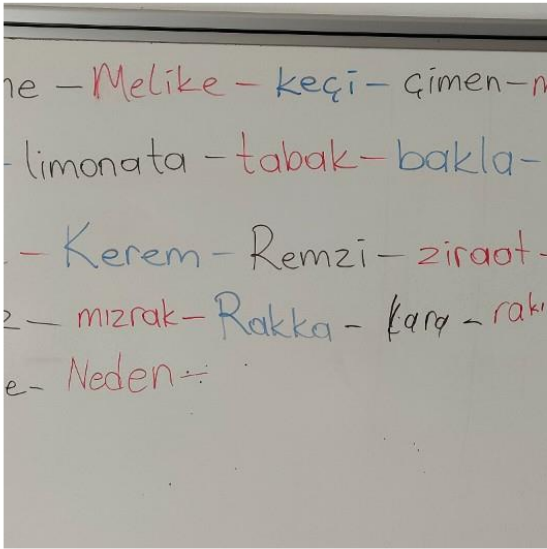 ne - Melike - keçi - çimen - n
- limonata - tabak - bakla -
- Kerem - Remzi - ziraat -
z - mızrak - Rakka - kara - rakı
e - Neden -